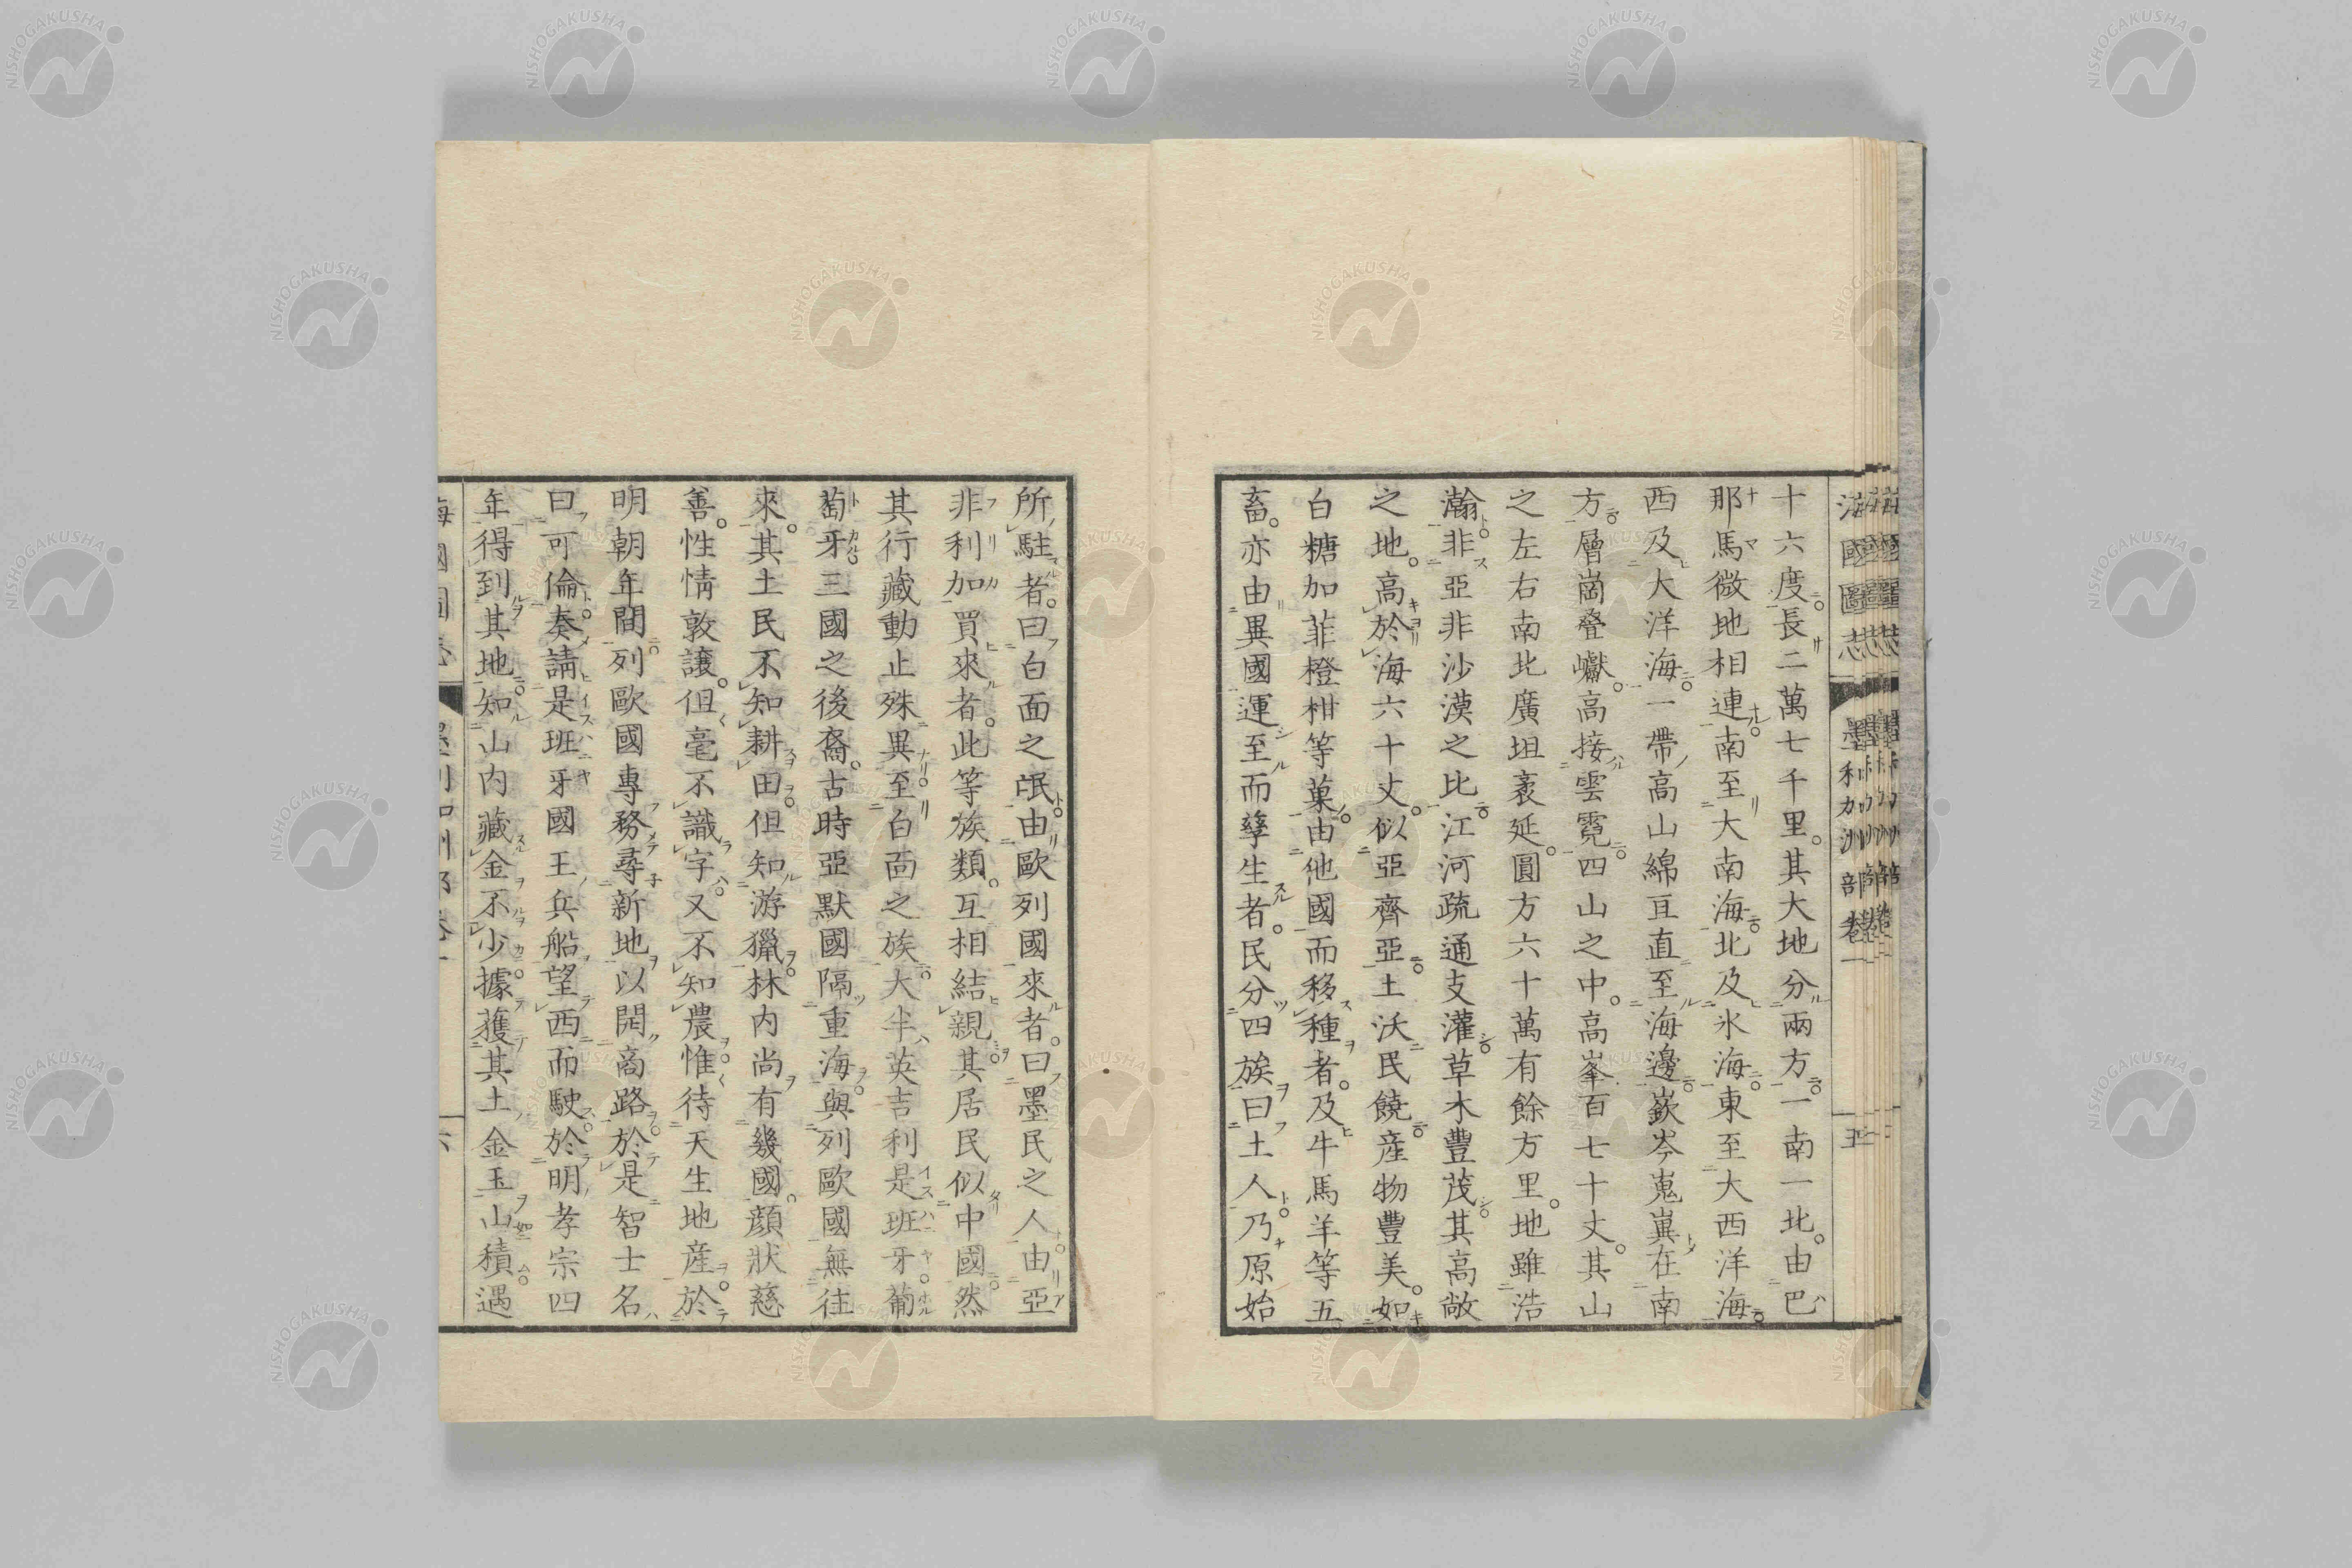 海國圖志
墨利加洲部卷一
五
十六度長二萬七千里。其大地分兩方一南一北。由巴
那馬微地相連南至大南海北及氷海東至大西洋海
西及大洋海一帶高山綿亙直至海邊嶔岑嵬㠔在南
方層崗叠巘。高接雲霓四山之中。高峯百七十丈。其山
之左右南北廣坦袤延。圓方六十萬有餘方里。地雖浩
瀚非亞非沙漠之比江河疏通支灌草木豐茂其高敞
之地。高於海六十丈。似亞齊亞土沃民饒産物豐美。如
白糖加菲橙柑等菓由他國而移種者。及牛馬羊等五
畜。亦由異國運至而孳生者。民分四族曰土人乃原始
所駐者。曰白面之氓由歐列國來者。曰墨民之人由亞
非利加買來者。此等族類。互相結親其居民似中國然
其行藏動止殊異至白面之族大半英吉利是班牙葡
萄牙三國之後裔。古時亞默國隔重海與列歐國無往
來。其土民不知耕田但知游獵林内尚有幾國。顔狀慈
善。性情敦讓。但毫不識字又不知農惟待天生地産於
明朝年間列歐國專務尋新地以開商路於是智士名
曰可倫奏請是班牙國王兵船望西而駛於明孝宗四
年得到其地知山内藏金不少據獲其土金玉山積遇